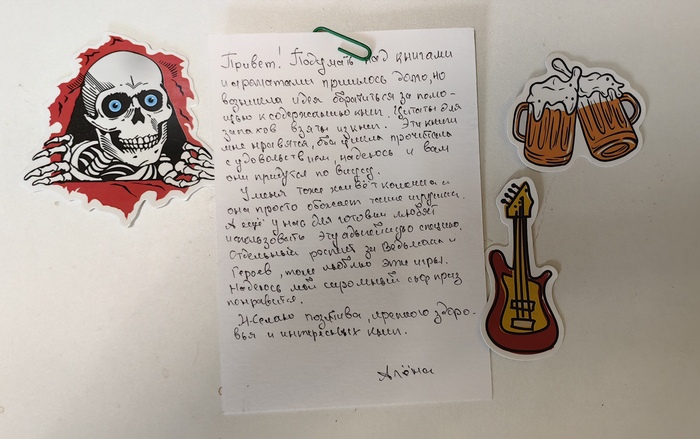 Привет! Подумать над книгами
и ароматами пришлось долго, но
возникла идея обратиться за помо-
щью к содержанию книг. Цитаты для
запахов взяты из книг. Эти книги
мне нравятся, оба цикла прочитала
с удовольствием, надеюсь и вам
они придутся по вкусу.
У меня тоже живёт кошка и
она просто обожает такие игрушки.
А ещё у нас для готовки любят
использовать эту адыгейскую специю.
Отдельный респект за Ведьмака и
Героев, тоже люблю эти игры.
Надеюсь мой скромный сюрприз
понравится.
Желаю позитива, крепкого здоро-
вья и интересных книг.
Алёна